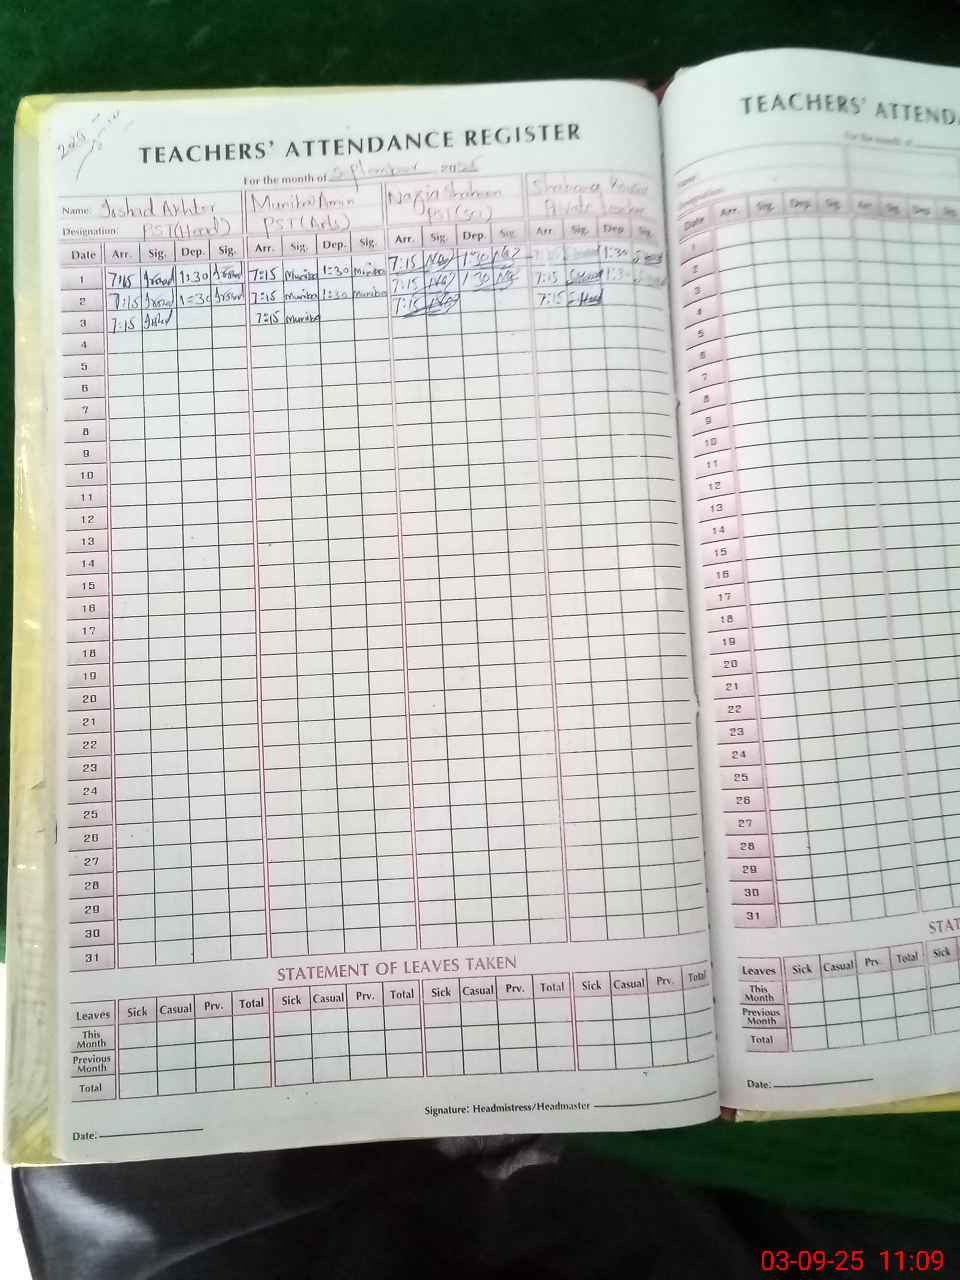 TEACHERS' ATTENDANCE REGISTER
For the month of September 2025
Name: Irshad Akhter Muniba Amin Nazia Shaheen Shabana Kousar
Designation: PST(Head) PST(Arts) PST(Sci) Private teacher
Date Arr. Sig. Dep. Sig. Arr. Sig. Dep. Sig. Arr. Sig. Dep. Sig. Arr. Sig. Dep Sig.
1 7:15 Irshad 1:30 Irshad 7:15 Muniba 1:30 Muniba 7:15 1:30 7:15 1:30
2 7:15 Irshad 1:30 Irshad 7:15 Muniba 1:30 Muniba 7:15 1:30 7:15 1:3
3 7:15 Irshad 7:15 Muniba 7:15 7:15
4
5
6
7
8
9
10
11
12
13
14
15
16
17
18
19
20
21
22
23
24
25
26
27
28
29
30
31
STATEMENT OF LEAVES TAKEN
Leaves Sick Casual Prv. Total Sick Casual Prv. Total Sick Casual Prv. Total Sick Casual Prv. Total
This
Month
Previous
Month
Total
Signature: Headmistress/Headmaster
Date:
TEACHERS' ATTENDA
For the month of
Name:
Designation:
Date Arr. Sig. Dep. Sig. Arr. Sig. Dep. Sig.
1
2
3
4
5
6
7
8
9
10
11
12
13
14
15
16
17
18
19
20
21
22
23
24
25
26
27
28
29
30
31
STAT
Leaves Sick Casual Prv. Total Sick
This
Month
Previous
Month
Total
Date:
03-09-25 11:09